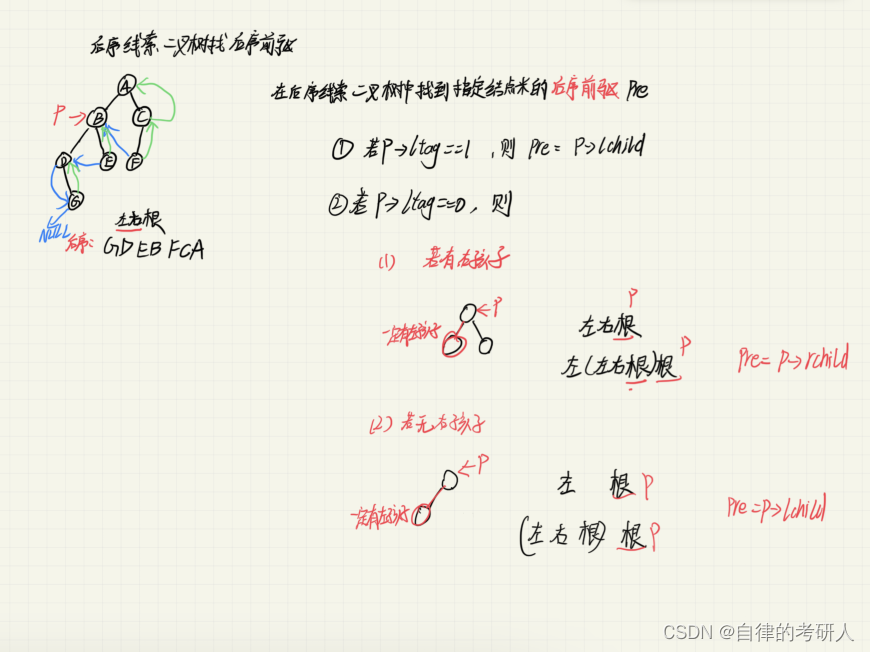 后序线索二叉树找后序前驱
在后序线索二叉树中找到指定结点*的后序前驱 pre
① 若P->ltag==1,则 pre= P->lchild
②若P->ltag==0,则
(1) 若有右孩子
一定有左孩子
P
左右根
P
左(左右根)根
P
Pre= P->rchild
(2) 若无右孩子
一定有左孩子
P
左 根 P
(左右根) 根 P
Pre=P->lchild
A
P
B
C
D
E
F
G
NULL
左右根
后序: GDEBFCA
CSDN @自律的考研人